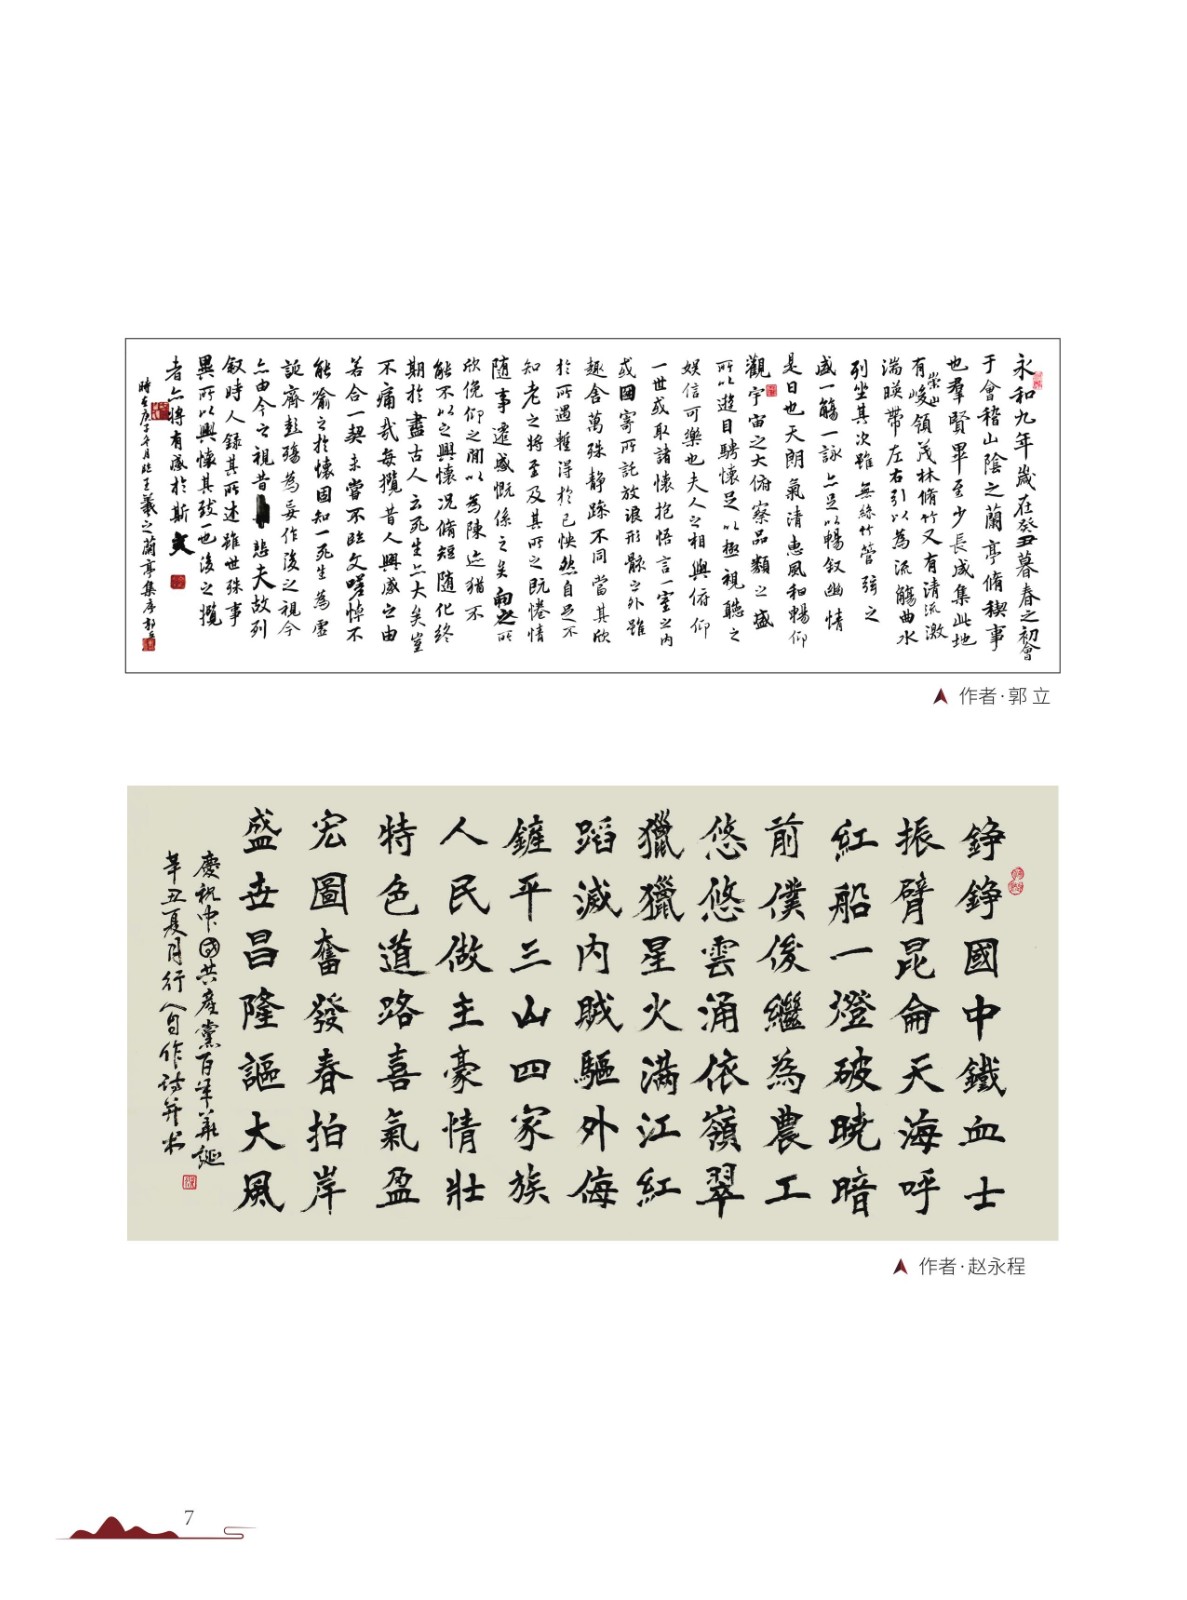 永和九年歲在癸丑暮春之初會
于會稽山陰之蘭亭脩稧事
也羣賢畢至少長咸集此地
有崇山峻領茂林脩竹又有清流激
湍暎帶左右引以為流觴曲水
列坐其次雖無絲竹管弦之
盛一觴一詠亦足以暢叙幽情
是日也天朗氣清惠風和暢仰
觀宇宙之大俯察品類之盛
所以遊目騁懷足以極視聽之
娛信可樂也夫人之相與俯仰
一世或取諸懷抱悟言一室之內
或因寄所託放浪形骸之外雖
趣舍萬殊静躁不同當其欣
於所遇暫得於己怏然自足不
知老之將至及其所之既惓情
隨事遷感慨係之矣向之所
欣俛仰之閒以為陳迹猶不
能不以之興懷况脩短隨化終
期於盡古人云死生亦大矣豈
不痛哉每攬昔人興感之由
若合一契未嘗不臨文嗟悼不
能喻之於懷固知一死生為虛
誕齊彭殤為妄作後之視今
亦由今之視昔悲夫故列
叙時人錄其所述雖世殊事
異所以興懷其致一也後之攬
者亦將有感於斯文
時在庚子年月臨王羲之蘭亭集序郭立
作者·郭 立
錚錚國中鐵血士
振臂昆侖天海呼
紅船一燈破曉暗
前僕後繼為農工
悠悠雲涌依嶺翠
獵獵星火滿江紅
蹈滅内賊驅外侮
鏟平三山四家族
人民做主豪情壯
特色道路喜氣盈
宏圖奮發春拍岸
盛世昌隆謳大風
慶祝中國共產黨百年華誕
辛丑夏月行人自作詩并書
作者·赵永程
7